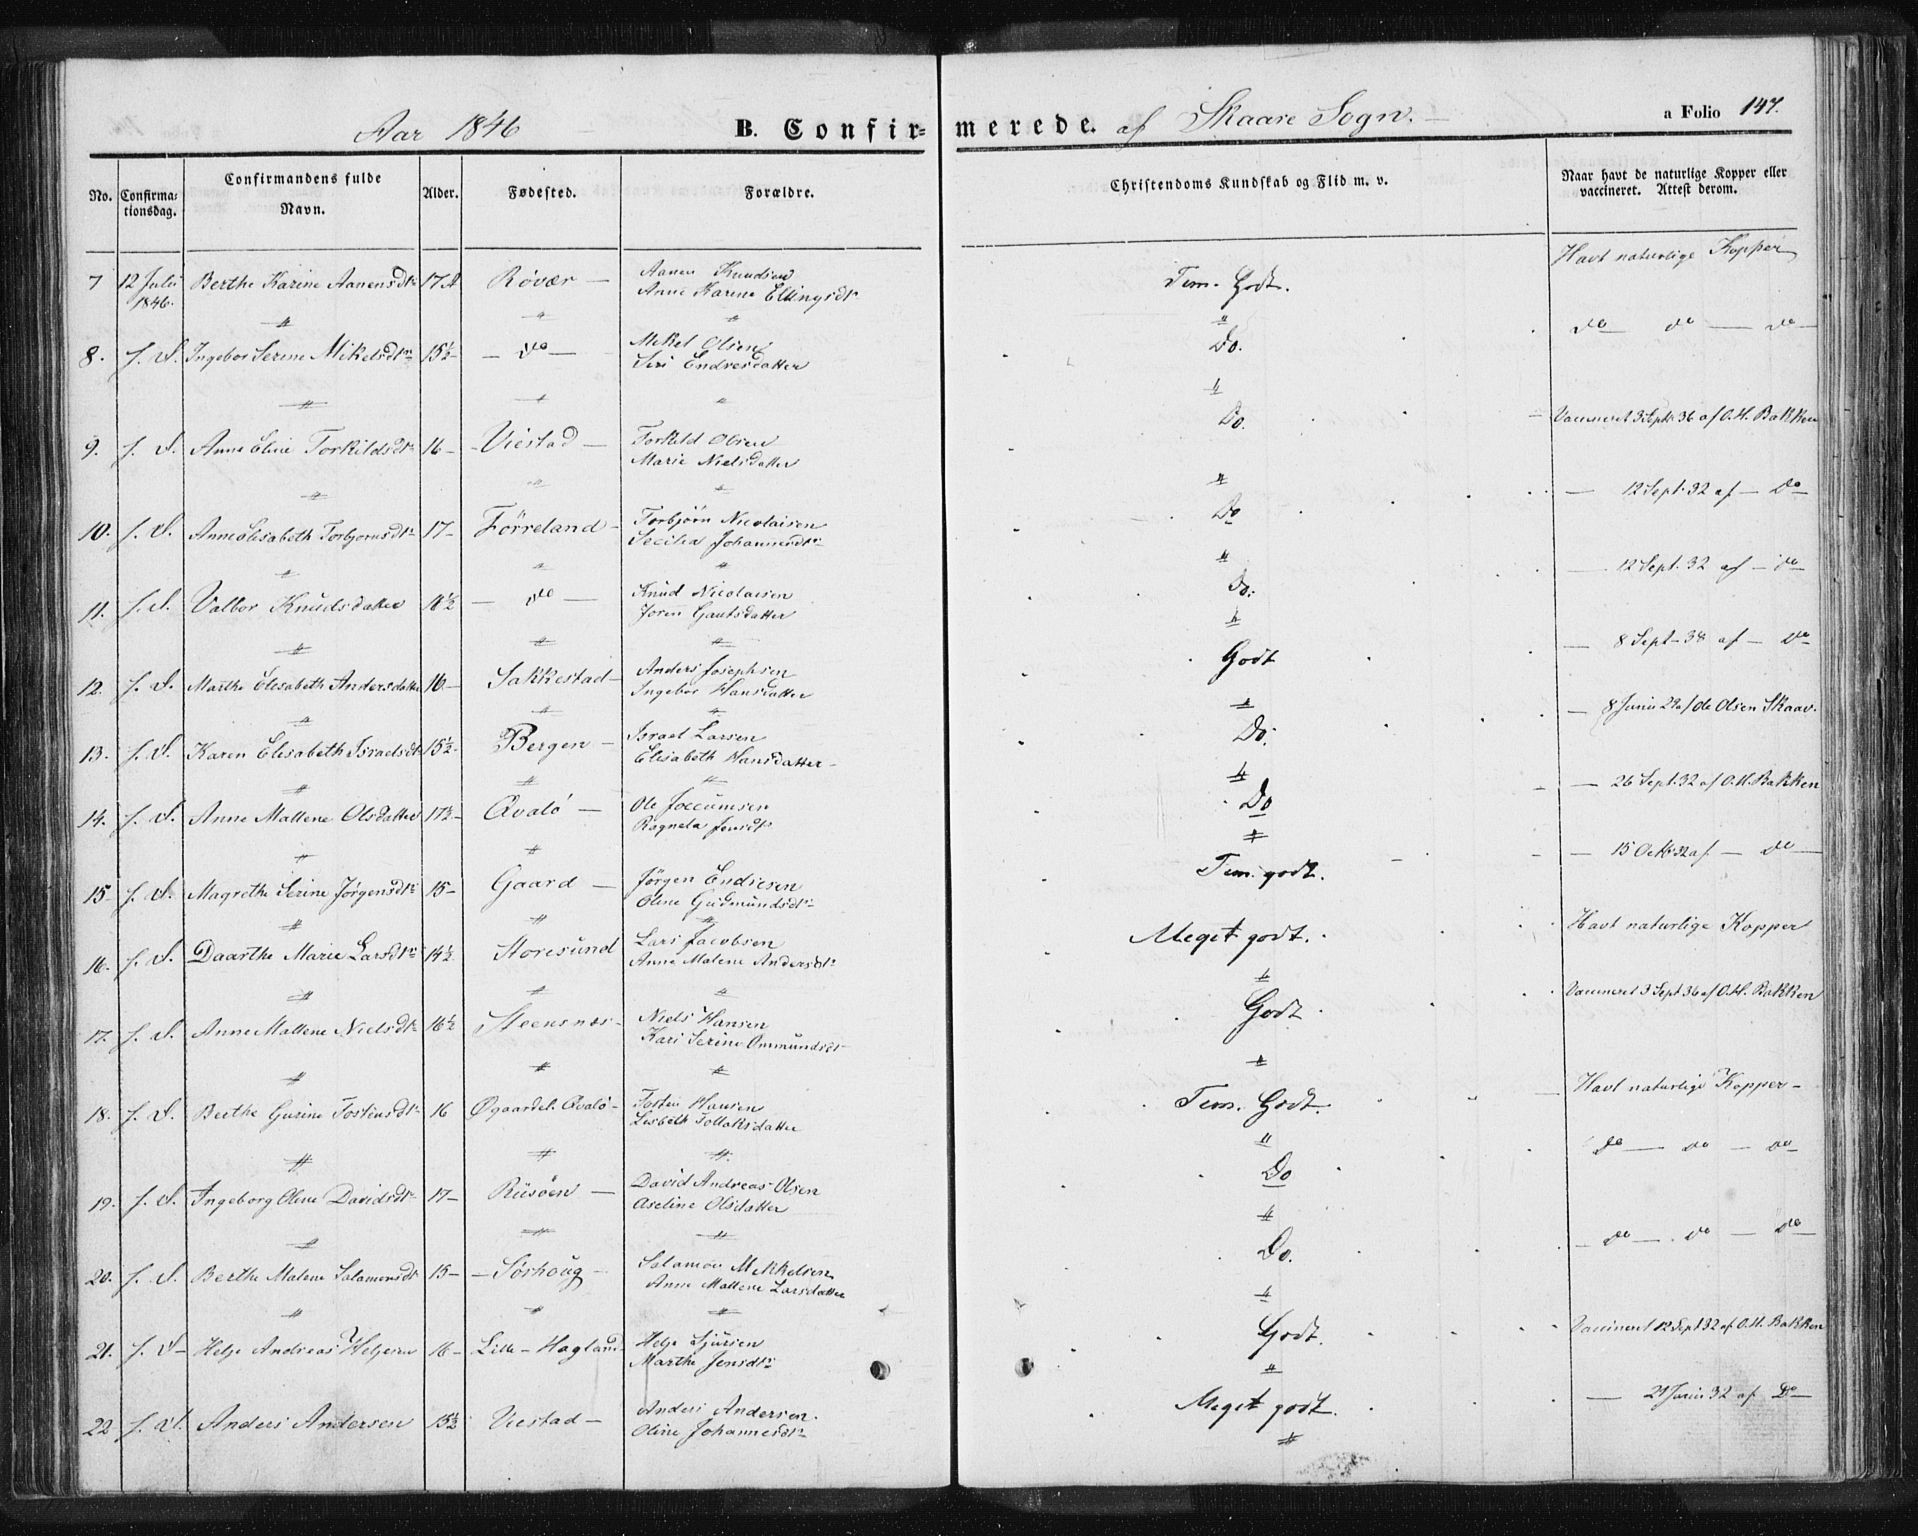 Aar 1846 B. Confir= merede. af Skaare Sogn. a Folio 147.
No. Confirma=tionsdag. Confirmandens fulde Navn. Alder. Fødested. Forældre. Christendoms Kundskab og Flid m. v. Naar havt de naturlige Kopper eller vaccineret. Attest derom.
7 12 Julii 1846. Berthe Karine Aanensdtr 17 Røvær — Aanen Knudsen Tem. Godt. Havt naturlige Kopper
Anne Karine Ellingsdtr
8. f. d. Ingebor Serine Mikelsdtr 15½ — do — Mikel Olsen Do. do — do — do —
Siri Endresdatter
9. f. d. Anne Eline Torkildsdtr 16 — Viestad — Torkild Olsen Do. Vaccineret 3 Sept. 36 af O.H. Bakken
Marie Nielsdatter
10. f. d. Anne Elisabeth Torbjornsdtr 17 — Førreland — Torbjørn Nicolaisen Do — 12 Sept. 32 af — Do
Secilia Johannesdtr
11. f. d. Valbor Knudsdatter — do — Knud Nicolaisen Do. — 12 Sept. 32 af — do
Joren Gautsdatter
12. f. d. Marthe Elisabeth Andersdatter 16 — Sakkestad — Anders Josephsen Godt — 8 Sept. 38 af — do
Ingebor Hansdatter
13. f. d. Karen Elisabeth Israelsdtr 15½ Bergen — Israel Larsen Do. — 8 Junii 29 af Ole Olsen Skaav.
Elisabeth Hansdatter —
14. f. d. Anne Mallene Olsdatter 17½ Qvalø — Ole Joccumsen Do — 26 Sept. 32 af O.H. Bakken
Ragnela Jensdtr
15 f. d. Magrethe Serine Jørgensdtr 15 — Gaard — Jörgen Endresen Tem. godt. — 15 Octb 32 af — do —
Oline Gudmundsdtr
16. f. d. Daarthe Marie Larsdtr 14½ Storesund Lars Jacobsen Meget godt. Havt naturlige Kopper
Anne Malene Andersdtr
17. f. d. Anne Mallene Nielsdtr 16½ Steensnæs — Niels Hansen Godt. Vaccineret 3 Sept 36 af O.H. Bakken
Kari Serine Ommundsdtr
18. f. d. Berthe Gurine Tostensdtr 16 Øgaardel. Qvalø — Tosten Hansen Tem. Godt. Havt naturlige Kopper —
Lisbeth Tollaksdatter
19. f. d. Ingeborg Oline Davidsdtr 17 — Risøen — David Andreas Olsen Do do — do — do
Aseline Olsdatter
20. f. d. Berthe Malene Salamonsdtr 15 — — Sørhoug — Salamon Mikkelsen Do. — do — do — do
Anne Mallene Larsdatter
21. f. d — Helje Andreas Heljesen 16 — Lille — Hagland Helje Sjursen Godt. Vaccineret 12 Sept 32 af O.H. Bakken
Marthe Jensdtr
22 f. d. Anders Andersen 15½ Viestad — Anders Andersen. Meget godt. — 21 Junii 32 af Do —
Oline Johannesdtr